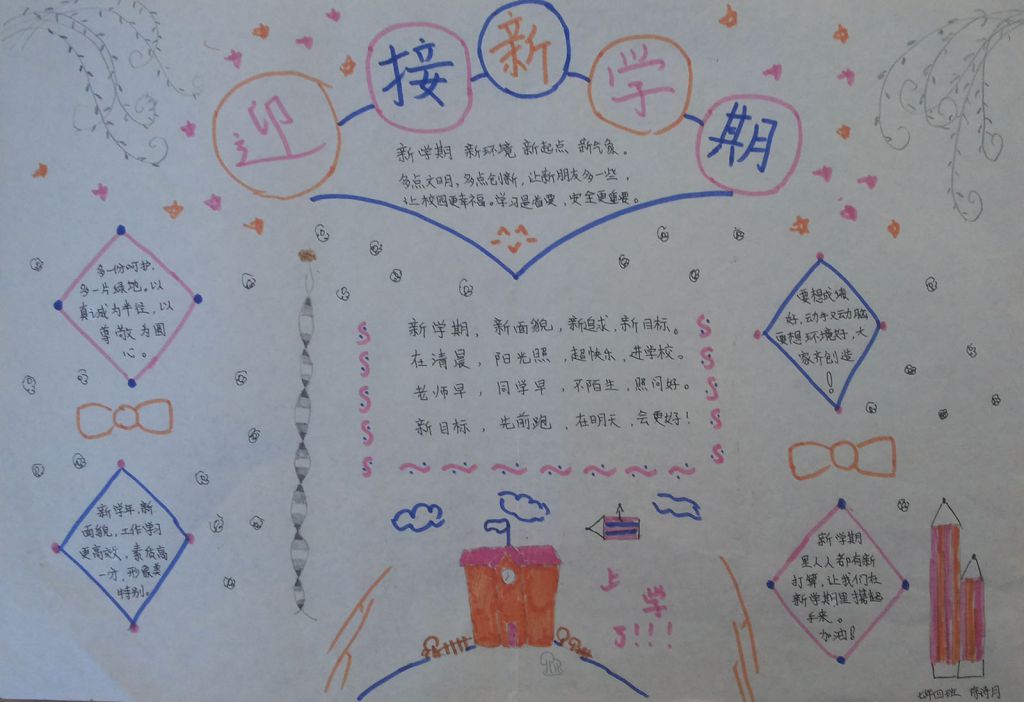 迎接新学期
新学期 新环境 新起点 新气象。
多点文明，多点创新，让新朋友多一些，
让校园更幸福。学习是首要，安全更重要。
多一份呵护，
多一片绿地。以
真诚成为半径，以
尊敬为圆
心。
要想成绩
好，动手又动脑
要想环境好，大
家齐创造
！
新学期，新面貌，新追求，新目标。
在清晨，阳光照，起快乐，进学校。
老师早，同学早，不陌生，照问好。
新目标，先前跑，在明天，会更好！
新学年，新
面貌，工作学习
更高效，素质高
一方，形象类
特别。
新学期
里人人都有新
打算，让我们在
新学期里携起
手来。
加油！
上
学
了！！！
七年四班